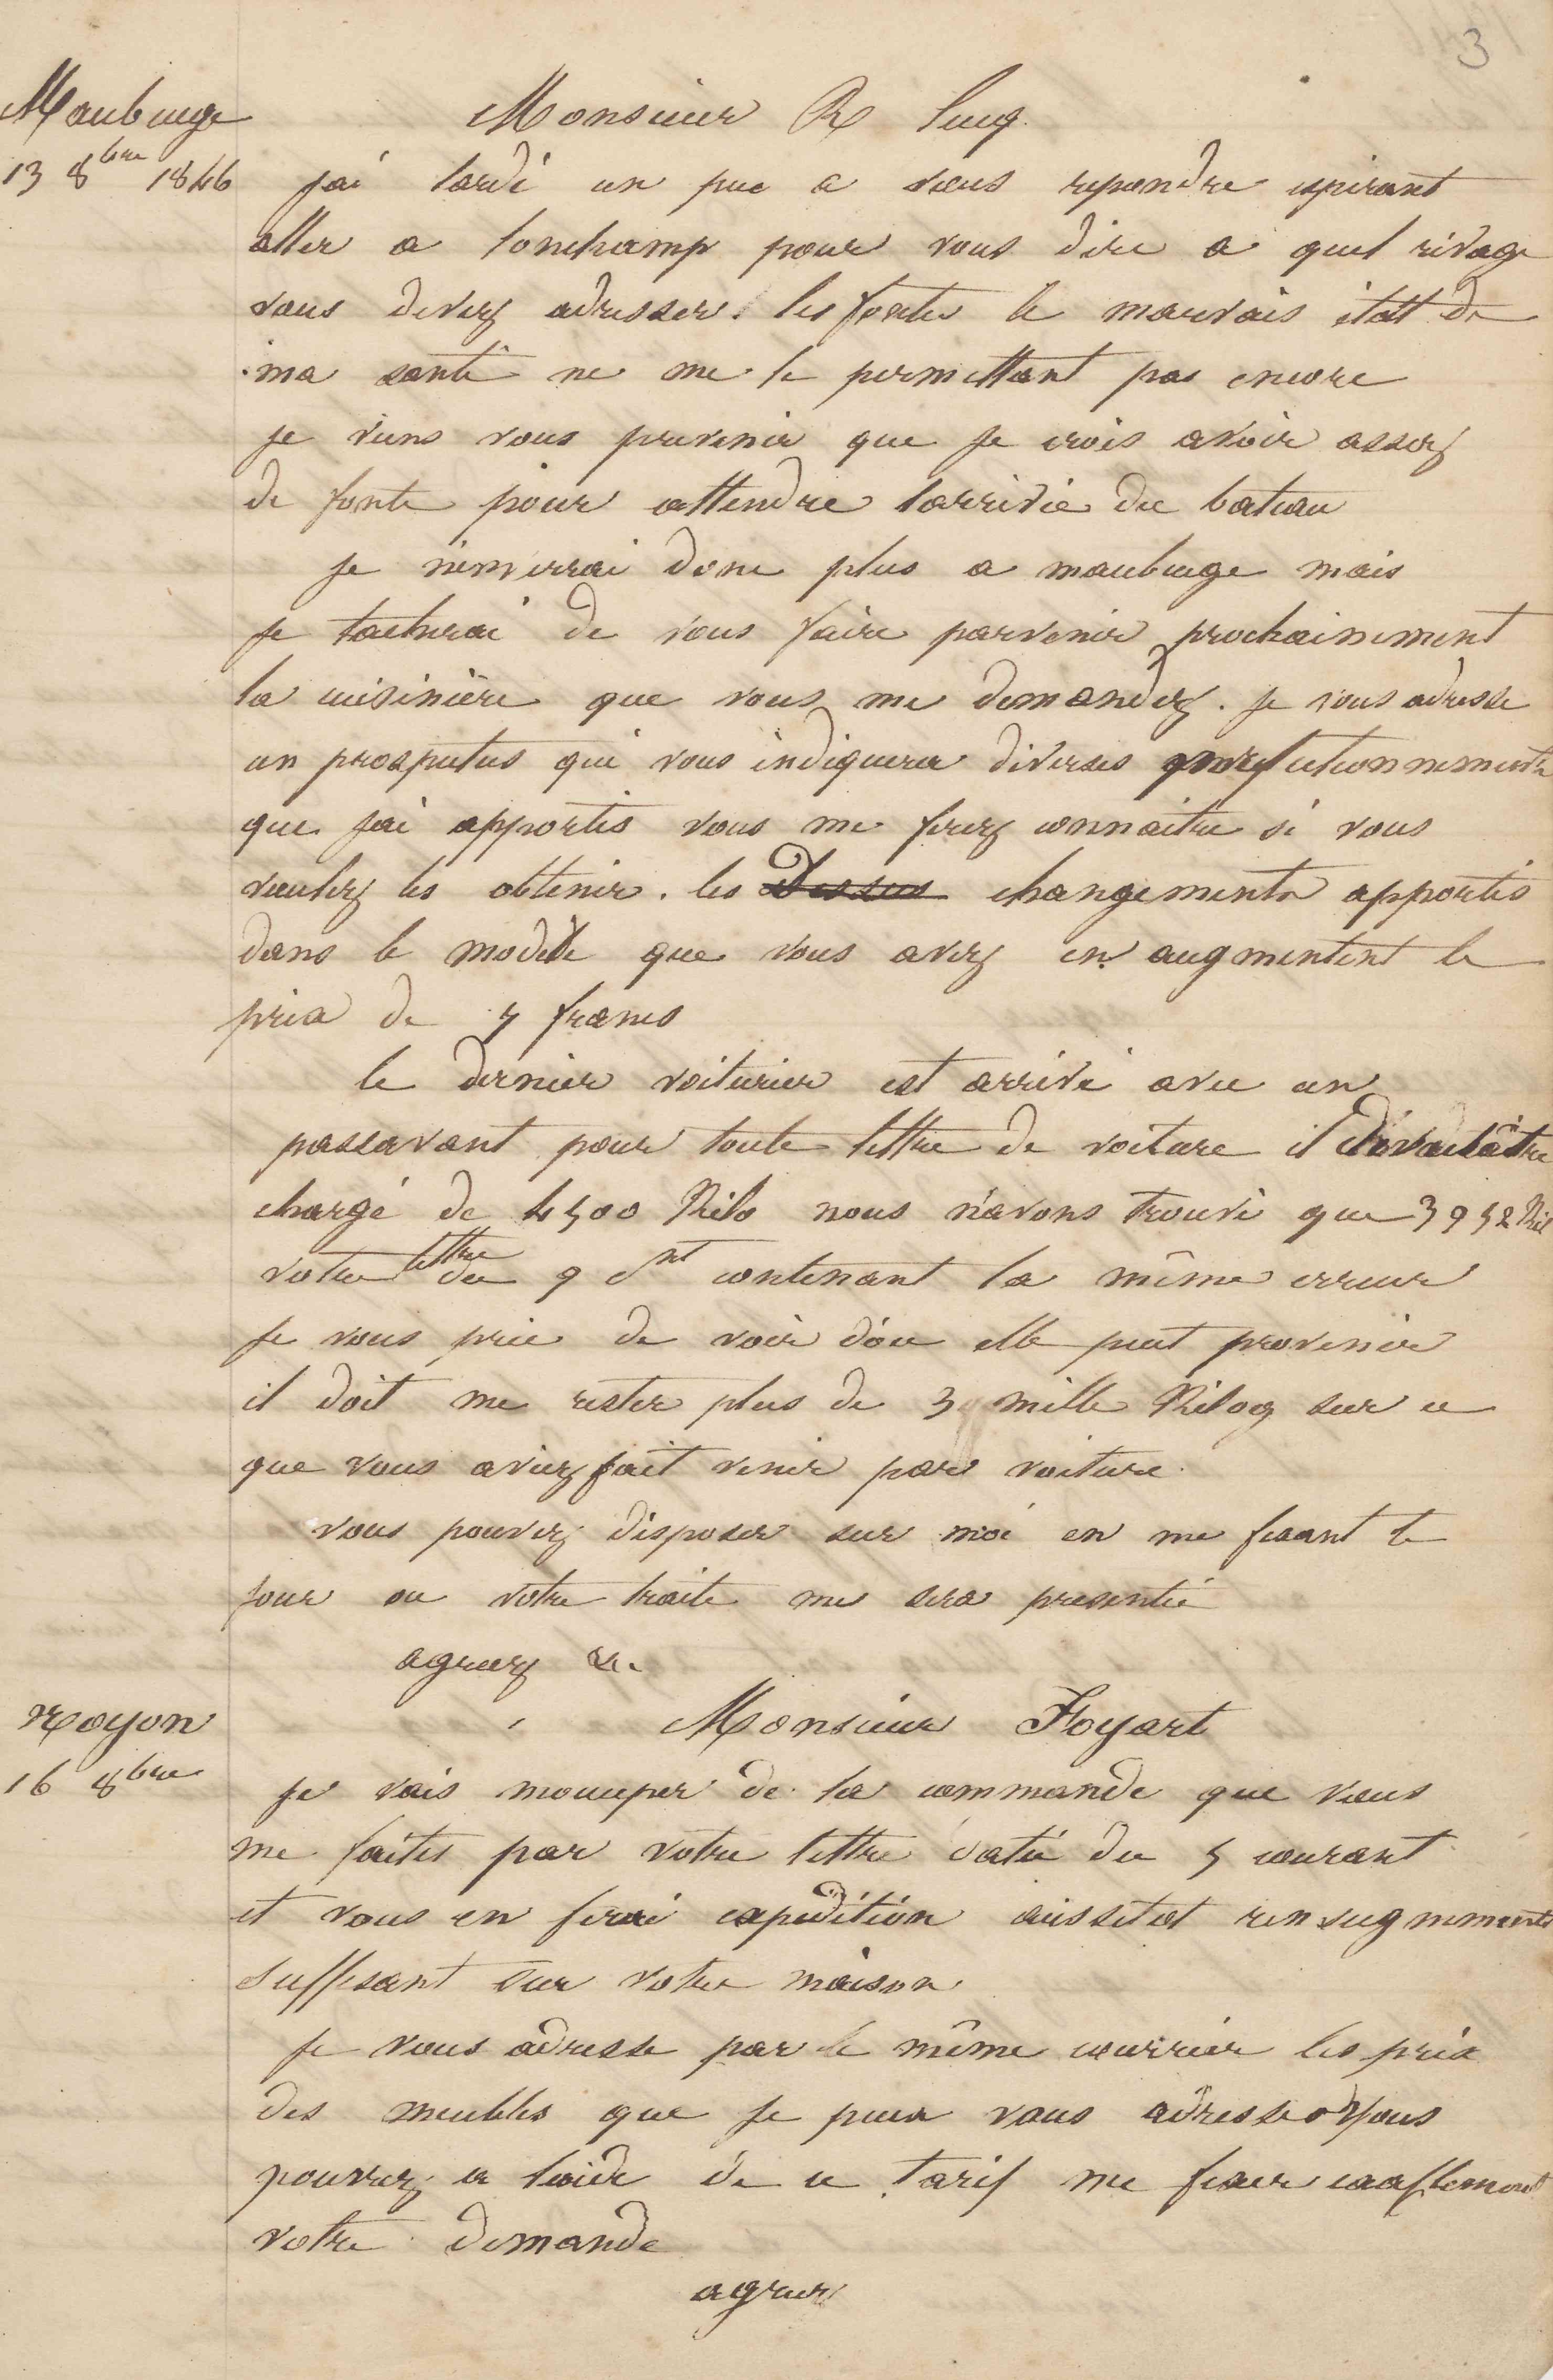 3
Maubuge
13 8bre 1846
Monsieur R
jai tardé un peu a vous repondre esperant
aller a lonchamp pour vous dire a quel rivage
vous devez adresser les fontes le mauvais état de
ma santé ne me le permettant pas encore
je viens vous prevenir que je crois avoir assez
de fonte pour attendre larrivée du bateau
je n'enverrai donc plus a maubuge mais
je tacherai de vous faire parvenir prochainement
la cuisinière que vous me demandez. je vous adresse
un prospectus qui vous indiquera diverses perfectionnements
que jai apportés vous me ferez connaitre si vous
voulez les obtenir. les Dessus changements apportés
dans le modele que vous avez en augmentent le
prix de 5 francs
le dernier voiturier est arrivé avec un
passavant pour toute lettre de voiture il devait être
chargé de 4500 Kilo nous n'avons trouvé que 3952 Kil
votre lettre du 9 ct contenant la même erreur
je vous prie de voir d'ou elle peut provenir
il doit me rester plus de 3 mille Kilog sur ce
que vous aviez fait venir par voiture.
vous pouvez disposer sur moi en me fixant le
jour ou votre traite me sera presentée
agreez &.
Noyon
16 8bre
Monsieur Foyart
je vais moccuper de la commande que vous
me faites par votre lettre datée du 5 courant
et vous en ferai expedition aussitot renseignements
suffisant sur votre maison
je vous adresse par le même courrier les prix
des meubles que je peux vous adresser Vous
pourrez a laide de ce tarif me fixer exactement
votre demande
agreez